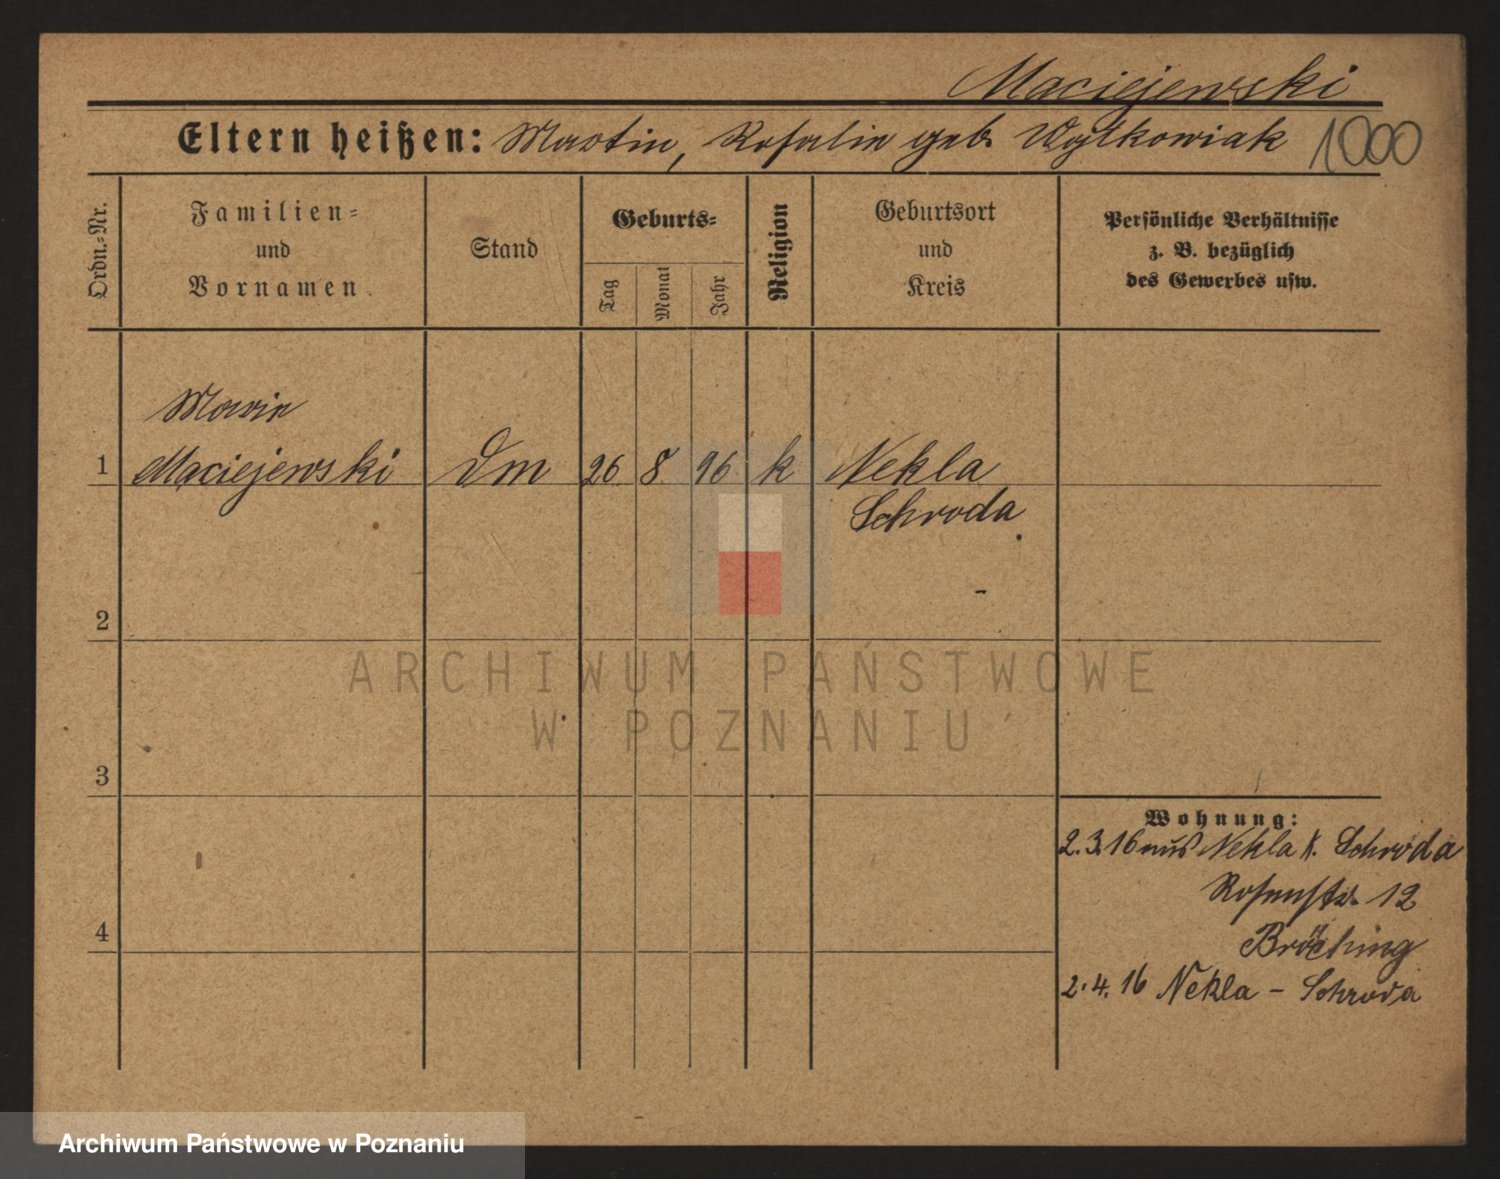 Maciejewski
Eltern heißen: Martin, Rosalie geb. Wojtkowiak 1000
Ordn.-Nr.
Familien-
und
Vornamen
Stand
Geburts-
Tag
Monat
Jahr
Religion
Geburtsort
und
Kreis
Persönliche Verhältnisse
z. B. bezüglich
des Gewerbes usw.
Marie
1 Maciejewski Dm 26 8 96 k Nekla
Schroda
2
3
4
Wohnung:
2.3.16 aus Nekla K. Schroda
Rosenstr. 12
2.4.16 Nekla - Schroda
ARCHIWUM PAŃSTWOWE
W POZNANIU
Archiwum Państwowe w Poznaniu